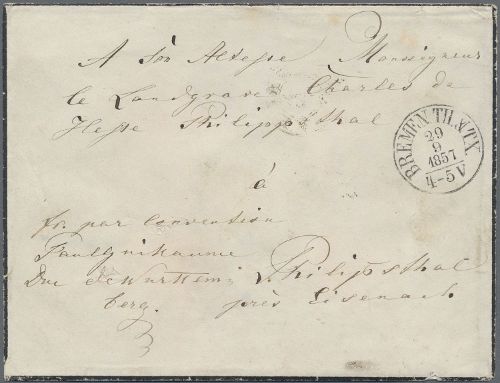 A Son Altesse Monseigneur
le Landgrave Charles de
Hesse Philippsthal
BREMEN TH. & TX
29
9
1857
4-5 V
á
fr. par Convention
Duc de Wurttem-
berg.
Philippsthal
près Eisenach